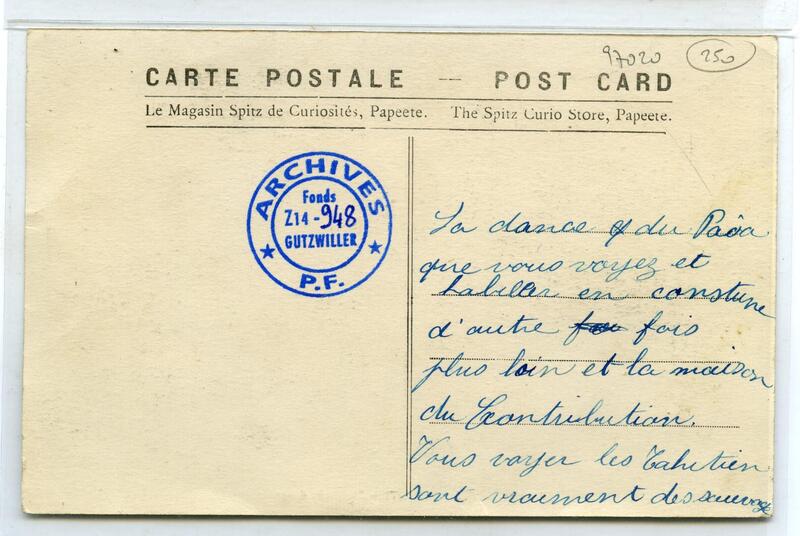 97020 250
CARTE POSTALE — POST CARD
Le Magasin Spitz de Curiosités, Papeete. The Spitz Curio Store, Papeete.
ARCHIVES
Fonds
Z14-948
GUTZWILLER
P.F.
La dance du Paöa
que vous voyez et
habiller en constume
d'autre fois
plus loin et la maison
du Contribution.
Vous voyer les Tahitien
sont vraiment des sauvage